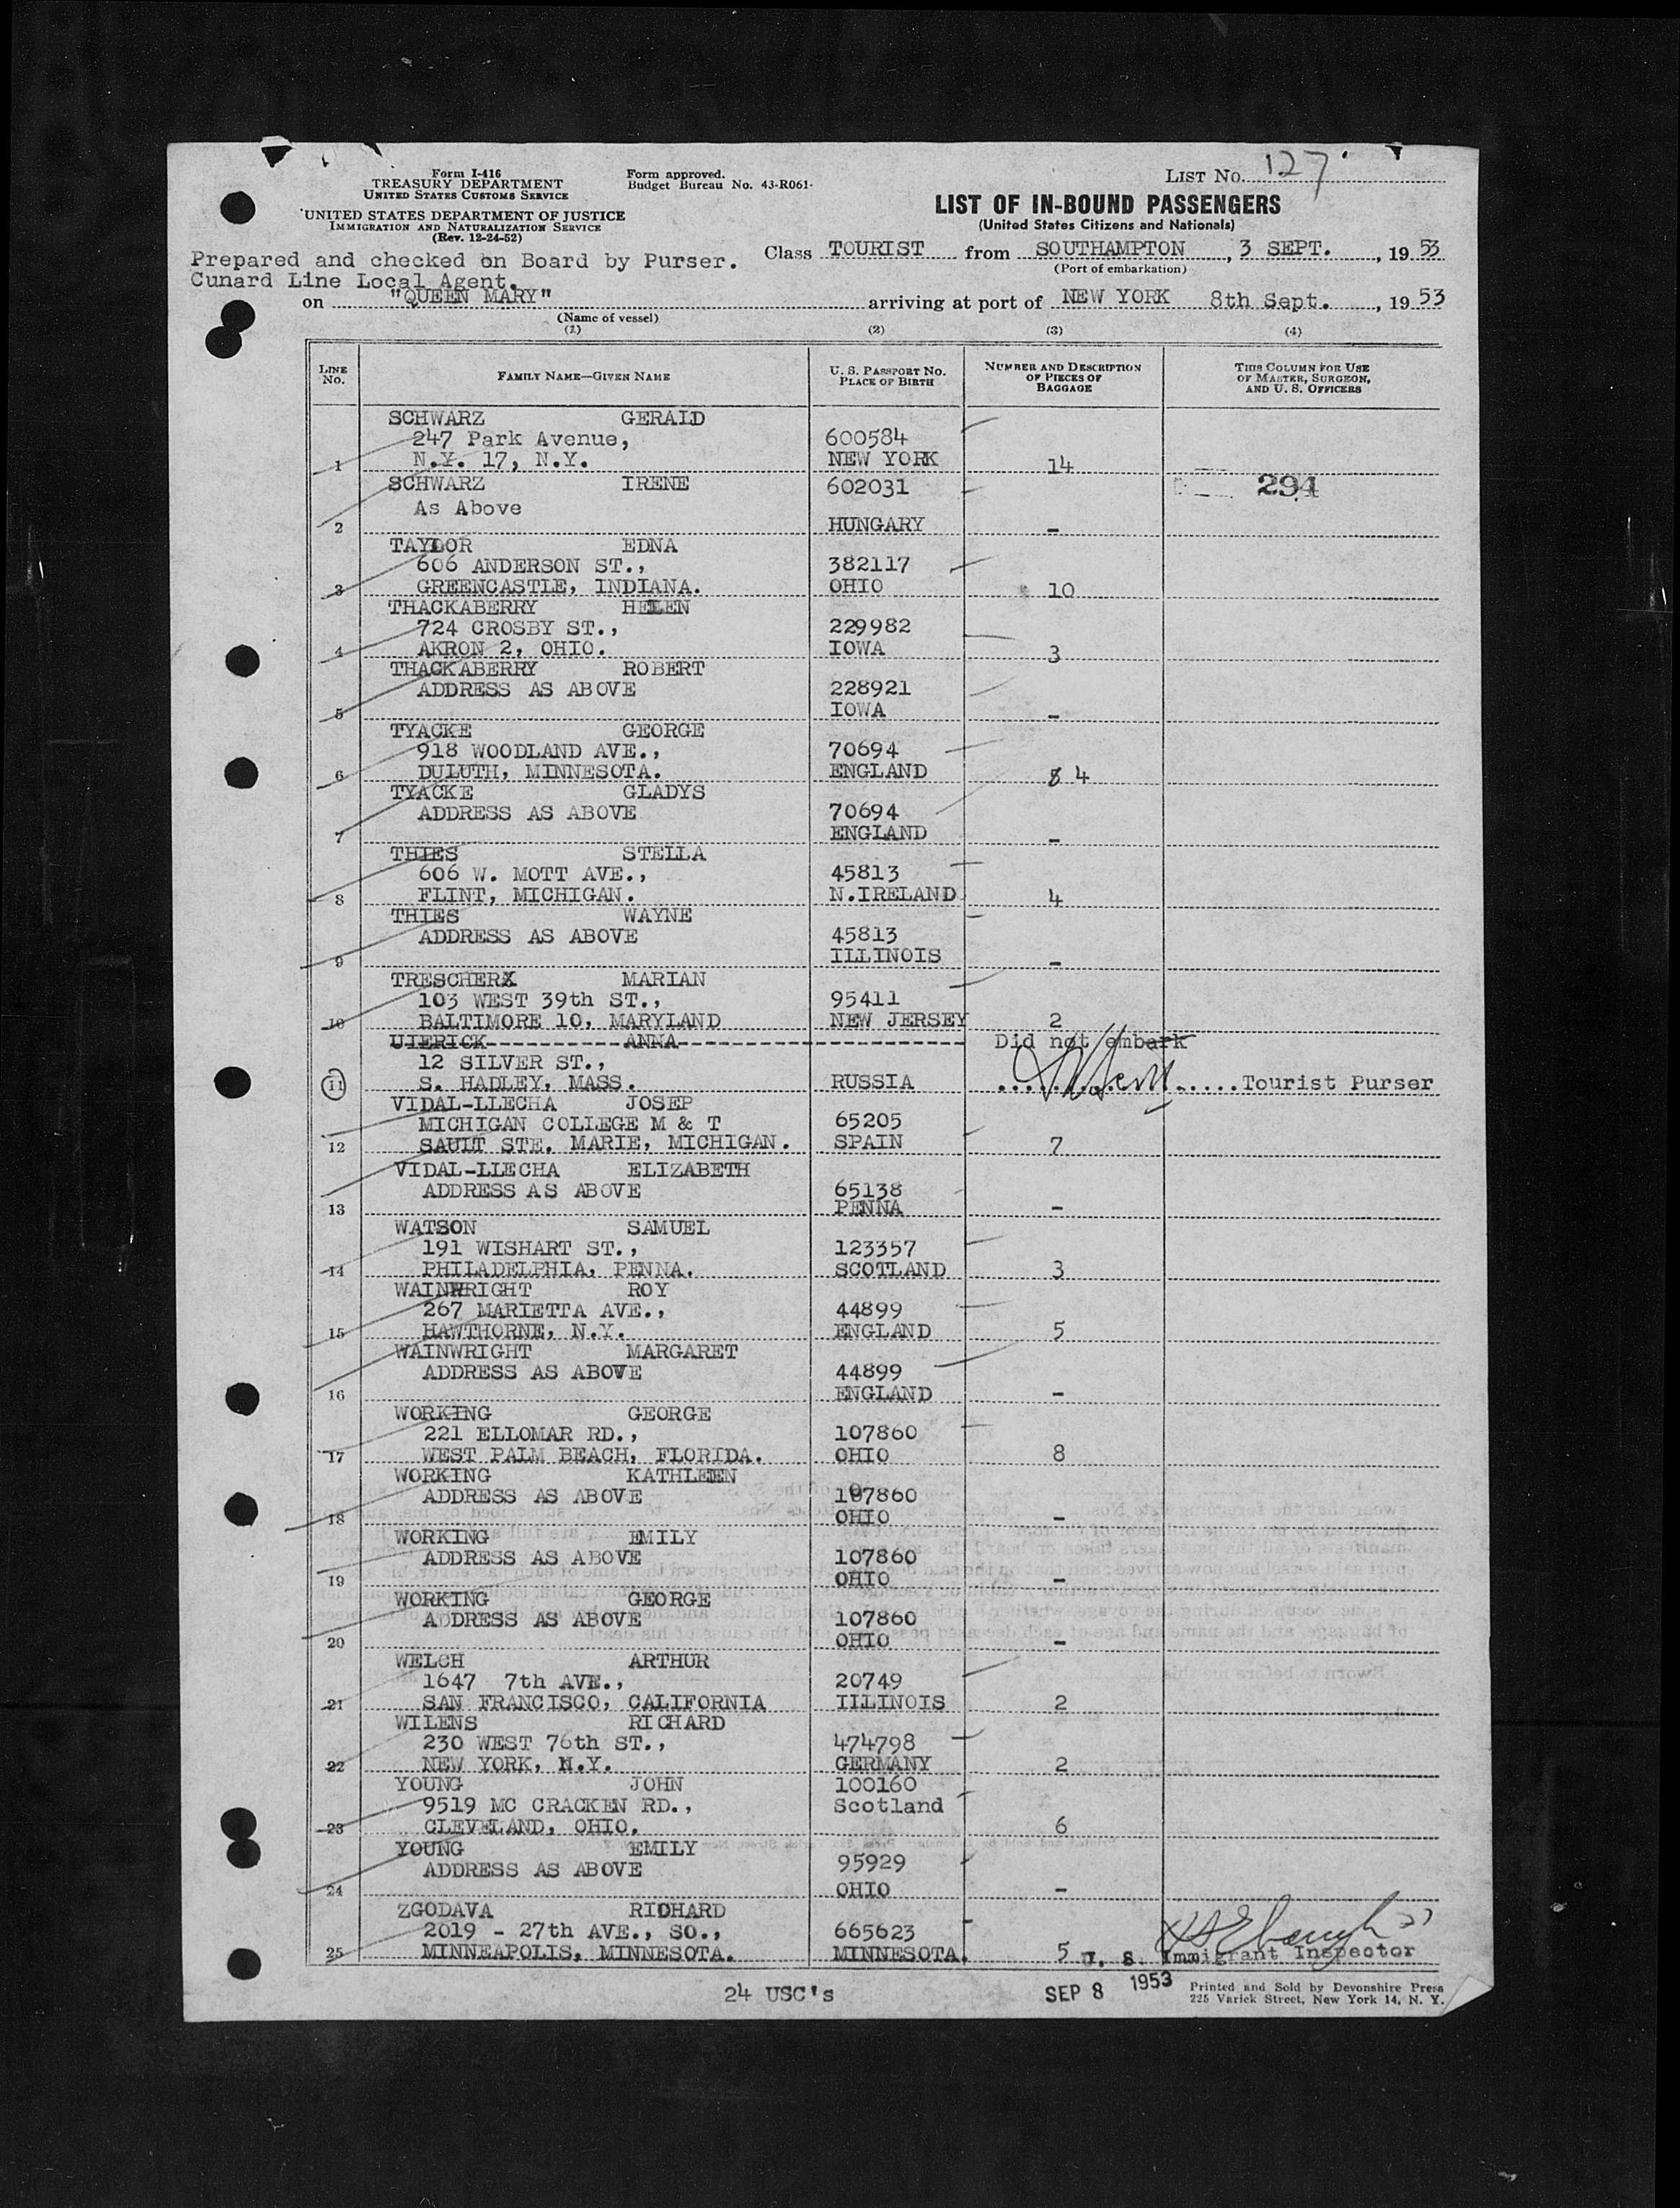 Form I-416
TREASURY DEPARTMENT
UNITED STATES CUSTOMS SERVICE
Form approved.
Budget Bureau No. 43-R061.
LIST NO. 127
UNITED STATES DEPARTMENT OF JUSTICE
IMMIGRATION AND NATURALIZATION SERVICE
(Rev. 12-24-52)
LIST OF IN-BOUND PASSENGERS
(United States Citizens and Nationals)
Prepared and checked on Board by Purser.
Cunard Line Local Agent.
Class TOURIST from SOUTHAMPTON, 3 SEPT., 1953
(Port of embarkation)
on "QUEEN MARY" arriving at port of NEW YORK 8th Sept., 1953
(Name of vessel)
(1) (2) (3) (4)
LINE NO. FAMILY NAME—GIVEN NAME U. S. PASSPORT NO. PLACE OF BIRTH NUMBER AND DESCRIPTION OF PIECES OF BAGGAGE THIS COLUMN FOR USE OF MASTER, SURGEON, AND U. S. OFFICERS
SCHWARZ GERALD
247 Park Avenue, 600584
1 N.Y. 17, N.Y. NEW YORK 14
SCHWARZ IRENE 602031 294
As Above
2 HUNGARY -
TAYLOR EDNA
606 ANDERSON ST., 382117
3 GREENCASTLE, INDIANA. OHIO 10
THACKABERRY HELEN
724 CROSBY ST., 229982
4 AKRON 2, OHIO. IOWA 3
THACKABERRY ROBERT
ADDRESS AS ABOVE 228921
5 IOWA -
TYACKE GEORGE
918 WOODLAND AVE., 70694
6 DULUTH, MINNESOTA. ENGLAND 4
TYACKE GLADYS
ADDRESS AS ABOVE 70694
7 ENGLAND -
THIES STELLA
606 W. MOTT AVE., 45813
8 FLINT, MICHIGAN. N.IRELAND 4
THIES WAYNE
ADDRESS AS ABOVE 45813
9 ILLINOIS -
TRESCHER MARIAN
103 WEST 39th ST., 95411
10 BALTIMORE 10, MARYLAND NEW JERSEY 2
UIERICK ANNA Did not embark
12 SILVER ST.,
11 S. HADLEY, MASS. RUSSIA Tourist Purser
VIDAL-LLECHA JOSEP
MICHIGAN COLLEGE M & T 65205
12 SAULT STE. MARIE, MICHIGAN. SPAIN 7
VIDAL-LLECHA ELIZABETH
ADDRESS AS ABOVE 65138
13 PENNA -
WATSON SAMUEL
191 WISHART ST., 123357
14 PHILADELPHIA, PENNA. SCOTLAND 3
WAINWRIGHT ROY
267 MARIETTA AVE., 44899
15 HAWTHORNE, N.Y. ENGLAND 5
WAINWRIGHT MARGARET
ADDRESS AS ABOVE 44899
16 ENGLAND -
WORKING GEORGE
221 ELLOMAR RD., 107860
17 WEST PALM BEACH, FLORIDA. OHIO 8
WORKING KATHLEEN
ADDRESS AS ABOVE 107860
18 OHIO -
WORKING EMILY
ADDRESS AS ABOVE 107860
19 OHIO -
WORKING GEORGE
ADDRESS AS ABOVE 107860
20 OHIO -
WELCH ARTHUR
1647 7th AVE., 20749
21 SAN FRANCISCO, CALIFORNIA ILLINOIS 2
WILENS RICHARD
230 WEST 76th ST., 474798
22 NEW YORK, N.Y. GERMANY 2
YOUNG JOHN 100160
9519 MC CRACKEN RD., Scotland
23 CLEVELAND, OHIO. 6
YOUNG EMILY
ADDRESS AS ABOVE 95929
24 OHIO -
ZGODAVA RICHARD
2019 - 27th AVE., SO., 665623
25 MINNEAPOLIS, MINNESOTA. MINNESOTA. 5 U. S. Immigrant Inspector
24 USC's
SEP 8 1953
Printed and Sold by Devonshire Press
225 Varick Street, New York 14, N. Y.